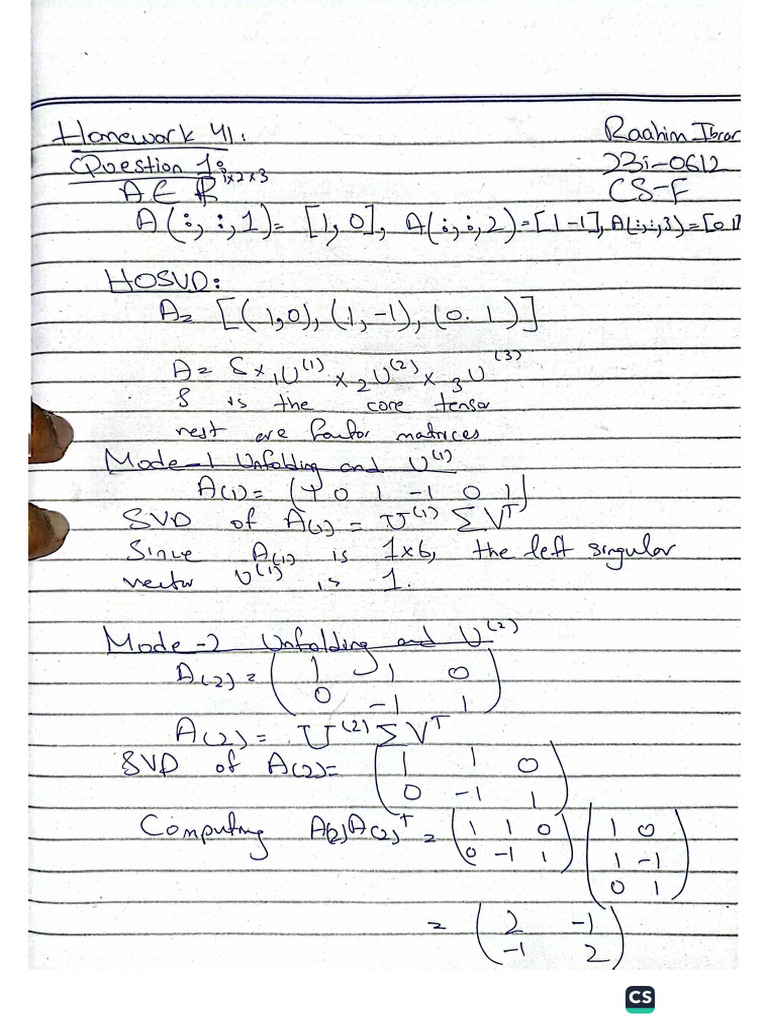 Homework 41:
Raahim Ibrar
Question 1:
23i-0612
A ∈ R^1×2×3
CS-F
A(:,:,1) = [1,0], A(:,:,2) = [1 -1], A(:,:,3) = [0 1]
HOSVD:
A= [(1,0),(1,-1),(0. 1)]
A= S×₁U^(1) ×₂U^(2) ×₃U^(3)
S is the core tensor
rest are factor matrices
Mode-1 Unfolding and U^(1)
A(1)= (1 0 1 -1 0 1)
SVD of A(1) = U^(1) ΣV^T
Since A(1) is 1x6, the left singular
vector U^(1) is 1.
Mode-2 Unfolding and U^(2)
A(2) = (1 1 0
0 -1 1)
A(2) = U^(2)ΣV^T
SVD of A(2)= (1 1 0
0 -1 1)
Computing A(2)A(2)^T = (1 1 0 (1 0
0 -1 1) 1 -1
0 1)
= (2 -1
-1 2)
CS